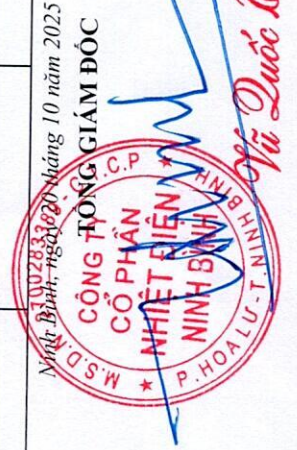 Ninh Bình, ngày 20 tháng 10 năm 2025
TỔNG GIÁM ĐỐC
CÔNG TY
CỔ PHẦN
NHIỆT ĐIỆN
NINH BÌNH
P. HOA LƯ - T. NINH BÌNH
Vũ Quốc